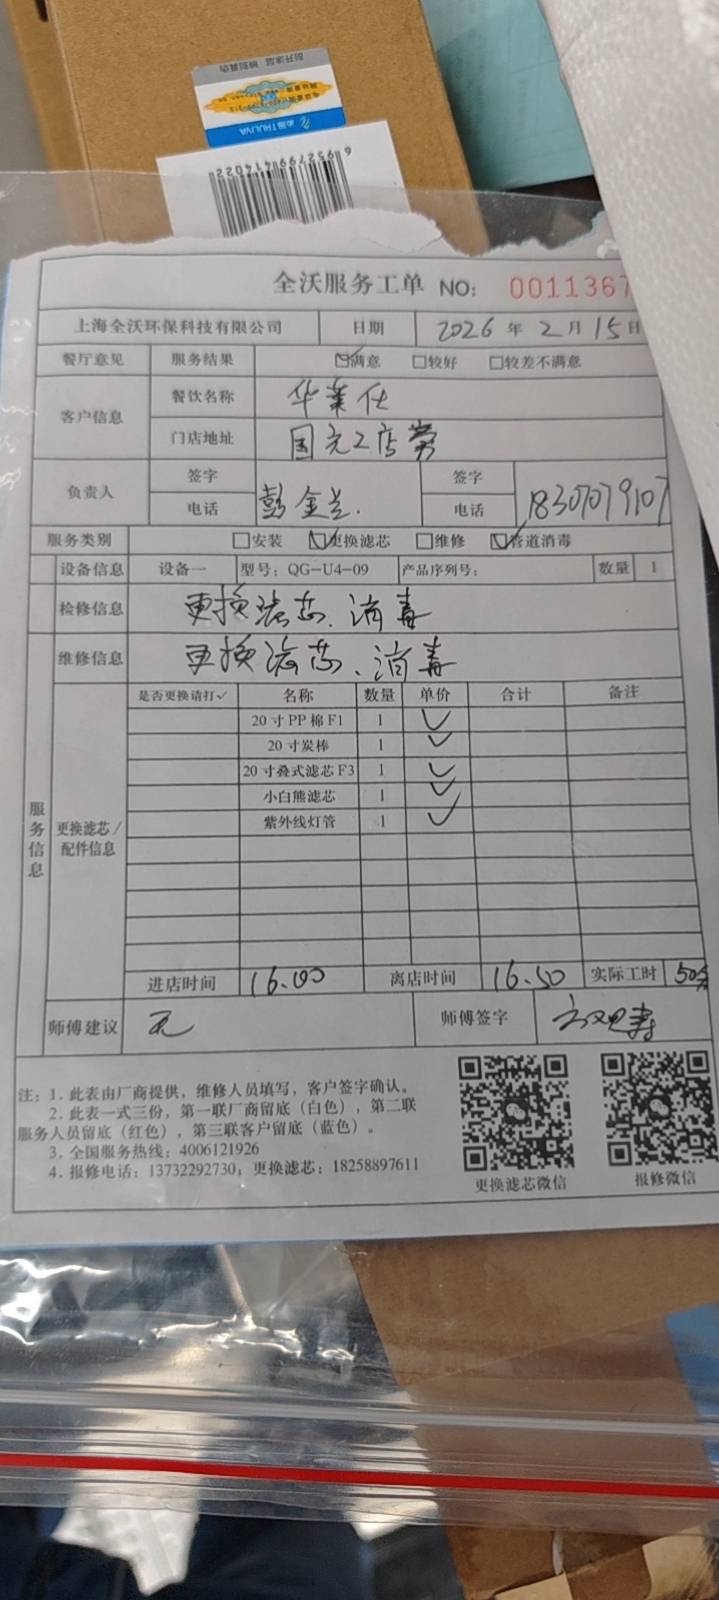 6952799414022
全沃服务工单 NO: 0011367
上海全沃环保科技有限公司 日期 2026年2月15日
餐厅意见 服务结果 ☑满意 □较好 □较差不满意
客户信息 餐饮名称 华莱仕
门店地址 国充工店旁
负责人 签字 彭金兰 签字
电话 电话 18307079107
服务类别 □安装 ☑更换滤芯 □维修 ☑管道消毒
设备信息 设备一 型号: QG-U4-09 产品序列号: 数量 1
检修信息 更换滤芯、消毒
维修信息 更换滤芯、消毒
服务信息
更换滤芯/配件信息
是否更换请打✓ 名称 数量 单价 合计 备注
20寸PP棉F1 1 ✓
20寸炭棒 1 ✓
20寸叠式滤芯F3 1 ✓
小白熊滤芯 1 ✓
紫外线灯管 1 ✓
进店时间 16.00 离店时间 16.50 实际工时 50分
师傅建议 无 师傅签字
注: 1. 此表由厂商提供，维修人员填写，客户签字确认。
2. 此表一式三份，第一联厂商留底（白色），第二联
服务人员留底（红色），第三联客户留底（蓝色）。
3. 全国服务热线: 4006121926
4. 报修电话: 13732292730; 更换滤芯: 18258897611
更换滤芯微信 报修微信